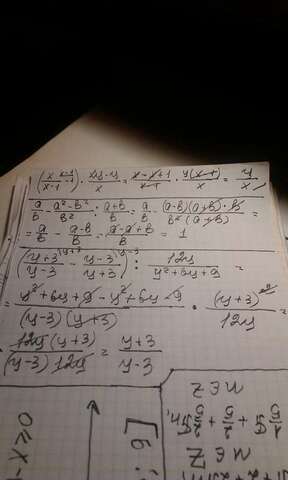 (x/(x-1) - 1) · (xy-y)/x = (x-x+1)/(x-1) · y(x-1)/x = y/x
a/b - (a²-b²)/b² : (a+b)/b = a/b - (a-b)(a+b)·b/(b²(a+b)) =
= a/b - (a-b)/b = (a-a+b)/b = 1
((y+3)/(y-3) - (y-3)/(y+3)) : 12y/(y²+6y+9) =
= (y²+6y+9-y²+6y-9)/((y-3)(y+3)) · (y+3)²/12y =
12y(y+3)/((y-3)12y) = (y+3)/(y-3)
n∈Z
n∈Z